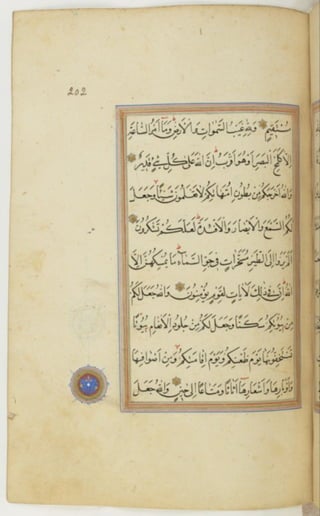 202
مستقيم ولله غيب السموات والارض وما امر الساعة
الا كلمح البصر او هو اقرب ان الله على كل شيء قدير
والله اخرجكم من بطون امهاتكم لا تعلمون شيئا وجعل
لكم السمع والابصار والافئدة لعلكم تشكرون
الم يروا الى الطير مسخرات في جو السماء ما يمسكهن الا
الله ان في ذلك لايات لقوم يؤمنون والله جعل لكم
من بيوتكم سكنا وجعل لكم من جلود الانعام بيوتا
تستخفونها يوم ظعنكم ويوم اقامتكم ومن اصوافها
واوبارها واشعارها اثاثا ومتاعا الى حين والله جعل